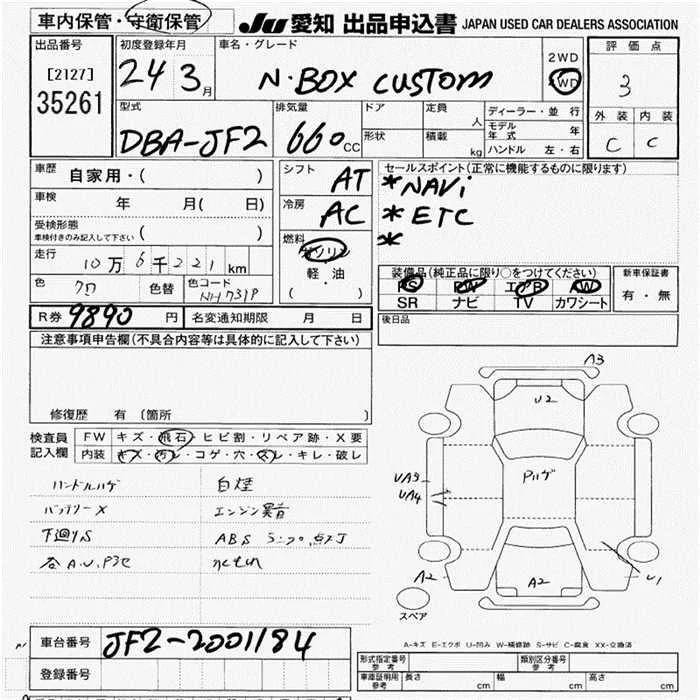 車内保管・守衛保管
JU 愛知 出品申込書 JAPAN USED CAR DEALERS ASSOCIATION
出品番号
[2127]
35261
初度登録年月
24 3月
車名・グレード
N・BOX CUSTOM
2WD
4WD
評価点
3
外装 内装
C C
型式
DBA-JF2
排気量
660cc
ドア
形状
定員 人
積載 kg
ディーラー・並行
モデル年式 年
ハンドル 左・右
車歴
自家用・( )
車検
年 月( 日)
受検形態
車検付きのみ記入して下さい ( )
走行
10万6千221km
色 色替 色コード
NH731P
シフト
AT
冷房
AC
燃料
ガソリン
軽・油
( )
セールスポイント(正常に機能するものに限ります)
*NAVi
*ETC
*
装備品(純正品に限り○をつけてください)
PS PW エアB AW
SR ナビ TV カワシート
新車保証書
有・無
R券 9890円
名変通知期限 月 日
後日品
注意事項申告欄(不具合内容等は具体的に記入して下さい)
修復歴 有 〔箇所 〕
検査員記入欄
FW キズ・飛石・ヒビ割・リペア跡・X要
内装 キズ・汚レ・コゲ・穴・スレ・キレ・破レ
ハンドルハゲ 白煙
バッテリーX エンジン異音
下廻りS ABS ランプ点灯
各A.U.Pアセ 水もれ
A3
U2
Pハゲ
UA3
UA4
A2
A2
U1
スペア
A-キズ E-エクボ U-凹み W-補修跡 S-サビ C-腐食 XX-交換済
車台番号
JF2-2001184
登録番号
形式指定番号 参考
類別区分番号 参考
車庫証明用 参考
長さ cm
幅 cm
高さ cm